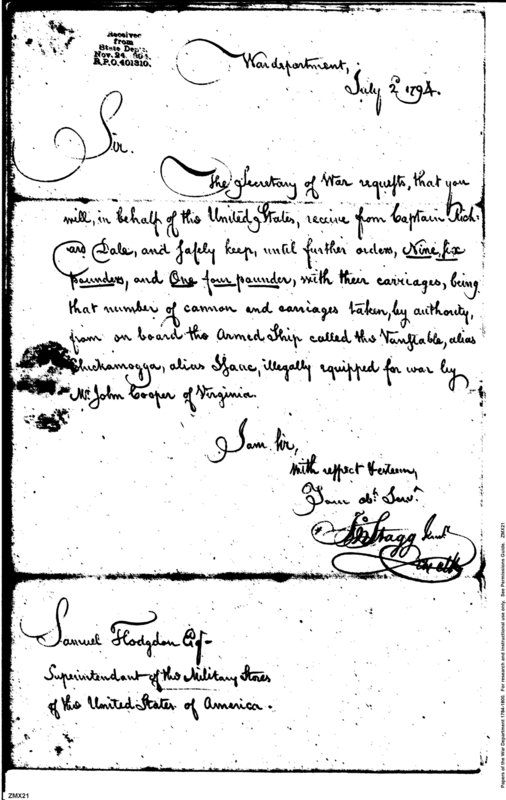 Received
from
State Dep't.
Nov. 24, 1904.
R.P.O. 401310.
War department,
July 2d 1794.
Sir.
The Secretary of War requests, that you
will, in behalf of the United States, receive from Captain Rich-
ard Dale, and safely keep, until further orders, Nine six
pounders, and One four pounder, with their carriages, being
that number of cannon and carriages taken, by authority,
from on board the Armed Ship called the Vanstable, alias
Chuckamogga, alias Isaac, illegally equipped for war by
Mr John Cooper of Virginia.
I am Sir,
with respect & esteem,
Your obt. Servt.
Jno Stagg Junr
Samuel Hodgdon Esq-
Superintendant of the Military Stores
of the United States of America.
ZMX21
Papers of the War Department 1784-1800. For research and instructional use only. See Permissions Guide. ZMX21